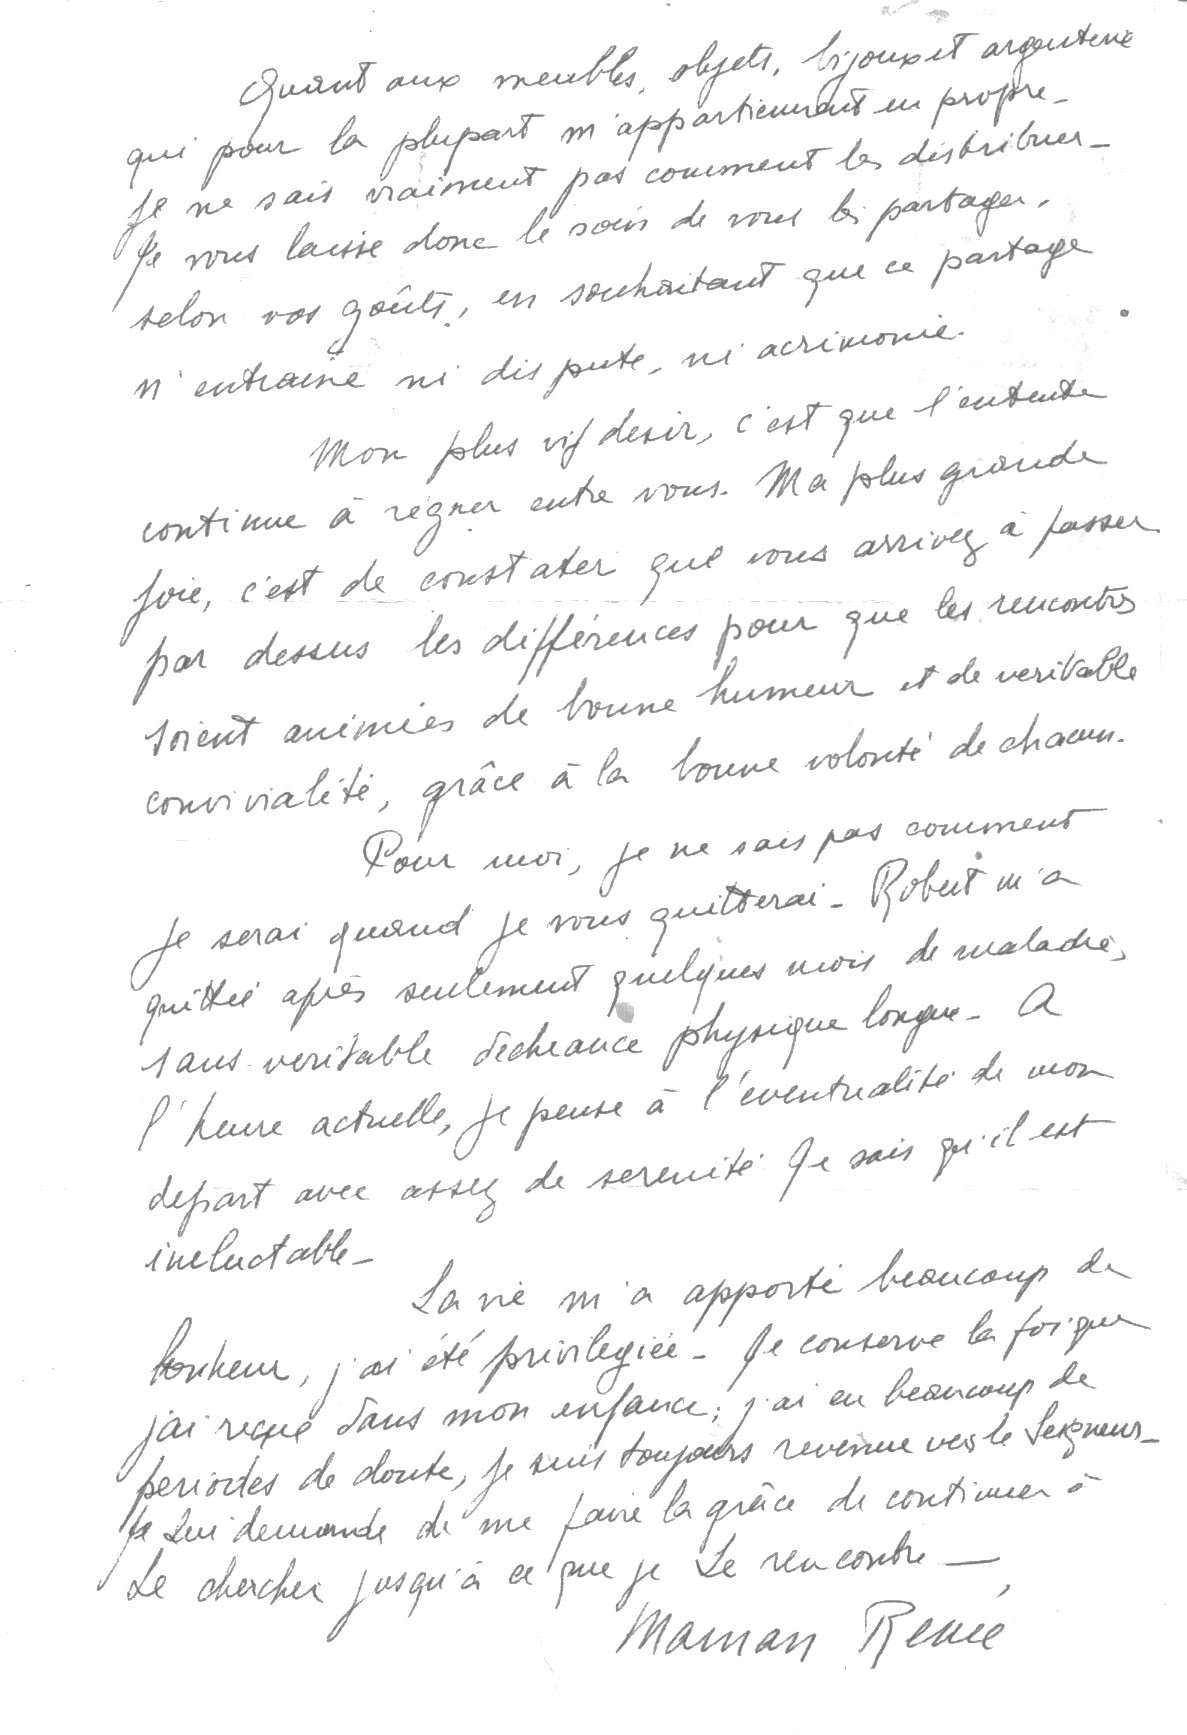 Quant aux meubles, objets, bijoux et argenterie
qui pour la plupart m'appartiennent en propre -
Je ne sais vraiment pas comment les distribuer -
Je vous laisse donc le soin de vous les partager,
selon vos goûts, en souhaitant que ce partage
n'entraîne ni dispute, ni acrimonie.
Mon plus vif desir, c'est que l'entente
continue à régner entre vous. Ma plus grande
joie, c'est de constater que vous arrivez à passer
par dessus les différences pour que les rencontres
soient animées de bonne humeur et de veritable
convivialité, grâce à la bonne volonté de chacun.
Pour moi, je ne sais pas comment
je serai quand je vous quitterai - Robert m'a
quittée après seulement quelques mois de maladie,
sans veritable déchéance physique longue - A
l'heure actuelle, je pense à l'éventualité de mon
depart avec assez de serenité Je sais qu'il est
ineluctable -
La vie m'a apporté beaucoup de
bonheur, j'ai été privilegiée - Je conserve la foi que
j'ai reçue dans mon enfance ; j'ai eu beaucoup de
periodes de doute, je suis toujours revenue vers le Seigneur -
Je Lui demande de me faire la grâce de continuer à
Le chercher jusqu'à ce que je Le rencontre —
Maman Renée